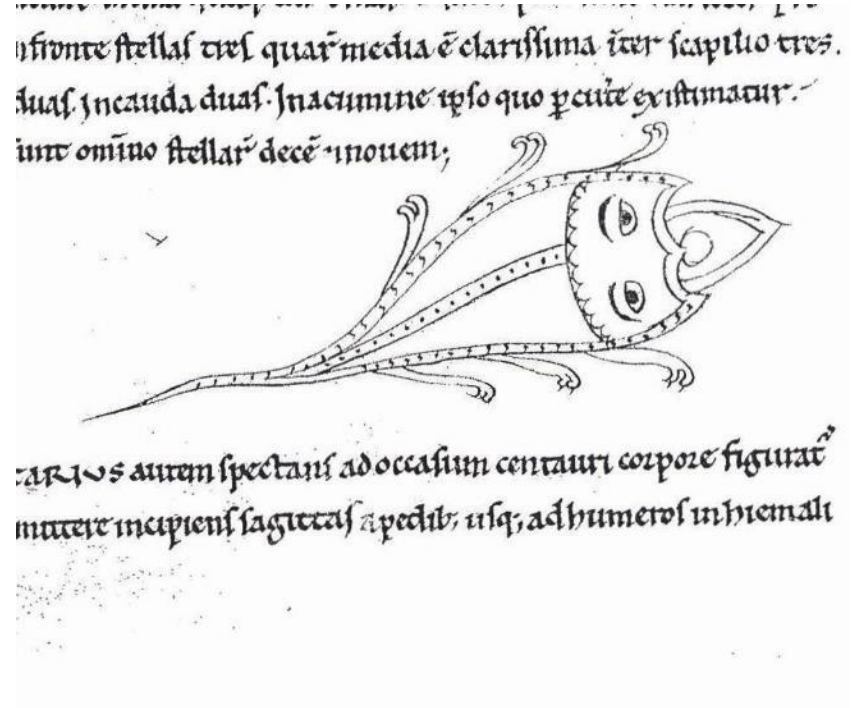 nfronte stellas tres quar̄ media ē clarissima īter scapilio tres.
duas. Incauda duas. Inacumine ipso quo ꝑcut̄e existimatur.
sunt om̄ino stellar̄ decē ⁊nouem;
TARIUS autem spectans adoccasum centauri corpore figurat᷑
mittere incipiens sagittas apedib; usq; adhumeros inhiemali